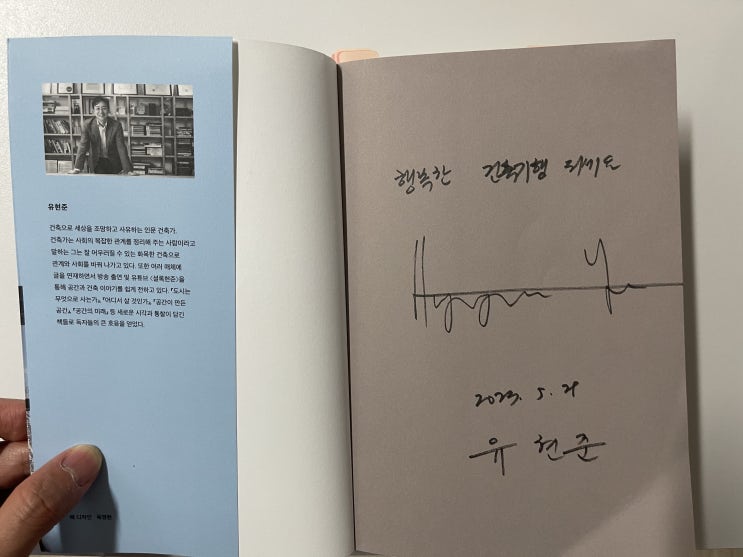 유현준
건축으로 세상을 조망하고 사유하는 인문 건축가.
건축가는 사회의 복잡한 관계를 정리해 주는 사람이라고
말하는 그는 잘 어우러질 수 있는 화목한 건축으로
관계와 사회를 바꿔 나가고 있다. 또한 여러 매체에
글을 연재하면서 방송 출연 및 유튜브 〈셜록현준〉을
통해 공간과 건축 이야기를 쉽게 전하고 있다. 『도시는
무엇으로 사는가』, 『어디서 살 것인가』, 『공간이 만든
공간』, 『공간의 미래』 등 새로운 시각과 통찰이 담긴
책들로 독자들의 큰 호응을 얻었다.
책 디자인
행복한 건축기행 되세요
Hyunjoon Yoo
2023. 5. 29
유현준